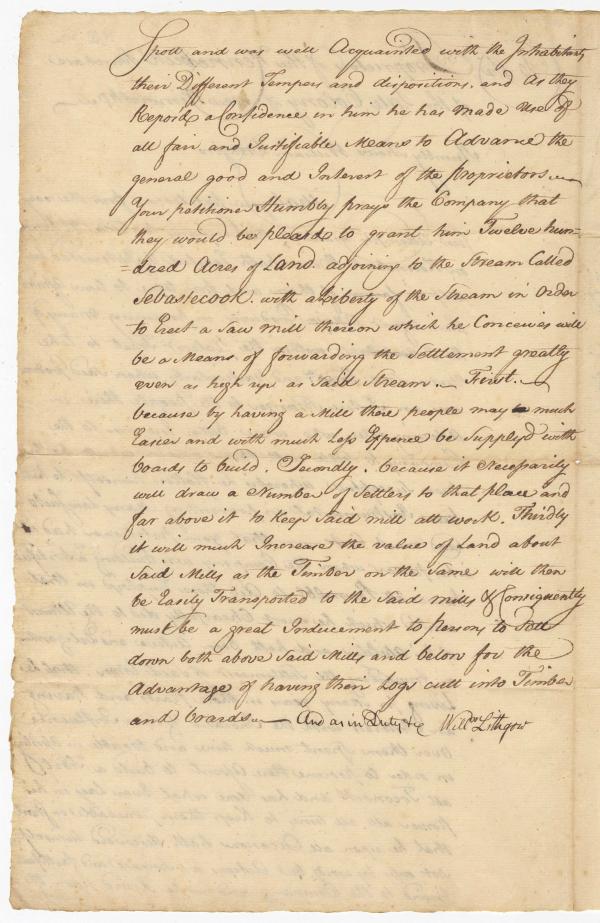 Spott and was well Acquainted with the Inhabitants
their Different Tempers and dispositions, and As they
Repos'd a Confidence in him he has made Use of
all fair and Justifiable Means to Advance the
general good and Interest of the proprietors.
Your petitioner Humbly prays the Company that
they would be pleased to grant him Twelve hun-
=dred Acres of Land. adjoining to the Stream Called
Sebastecook. with a Liberty of the Stream in Order
to Erect a Saw mill thereon which he Conceives will
be a Means of forwarding the Settlement greatly
even as high up as Said Stream. First.
because by having a Mill there people may much
Easier and with much Less Expence be Supplyd with
boards to build. Secondly. because it Necessarily
will draw a Number of Settlers to that place and
far above it to Keep Said mill att work. Thirdly
it will much Increase the value of Land about
Said Mills as the Timber on the Same will then
be Easily Transported to the Said mills & Consequently
must be a great Inducement to persons to Settle
down both above Said Mills and below for the
Advantage of having their Logs cutt into Timber
and boards. And as in Duty &c Willm Lithgow